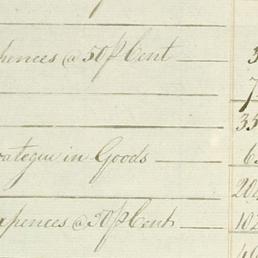 pences @ 50 P Cent 3
7
35
rategue in Goods 6
204
xpences @ 20 P Cent 102